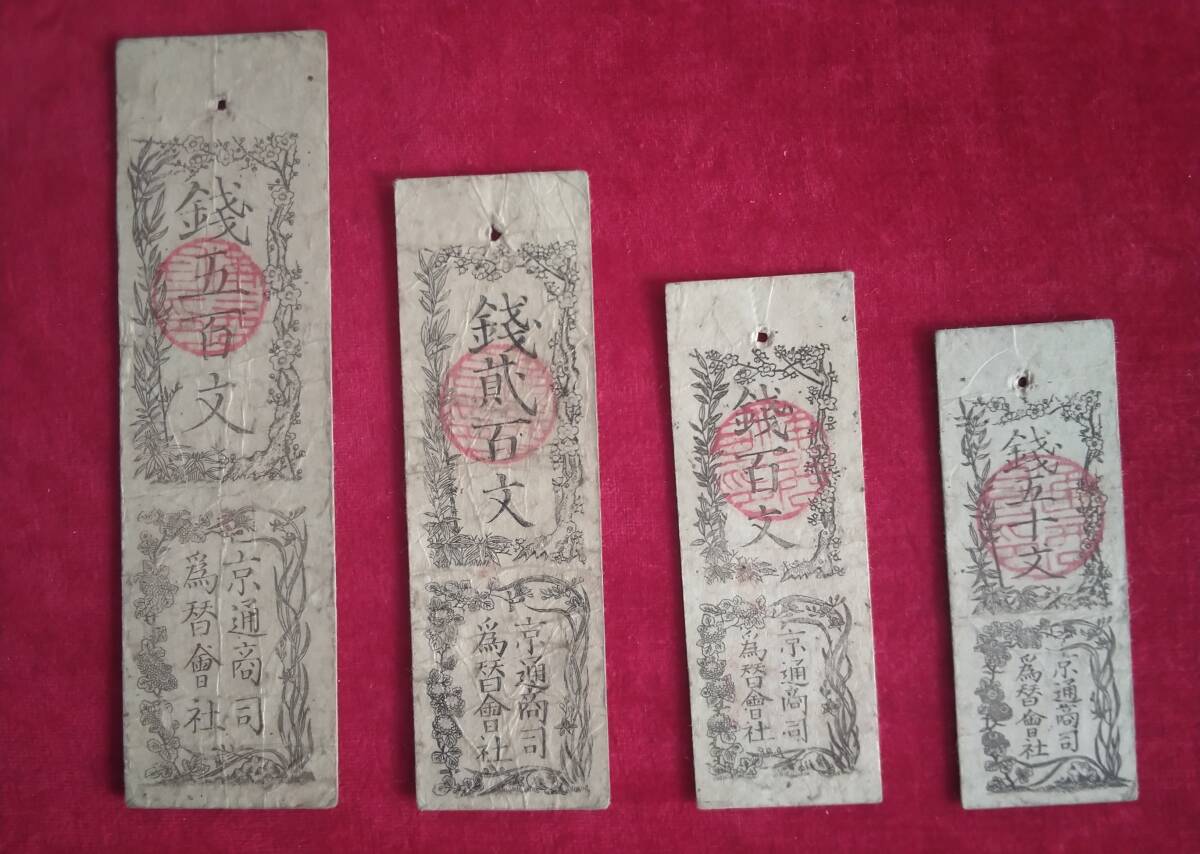 錢五百文
京通商司
爲替會社
錢貳百文
京通商司
爲替會社
錢百文
京通商司
爲替會社
錢五十文
京通商司
爲替會社